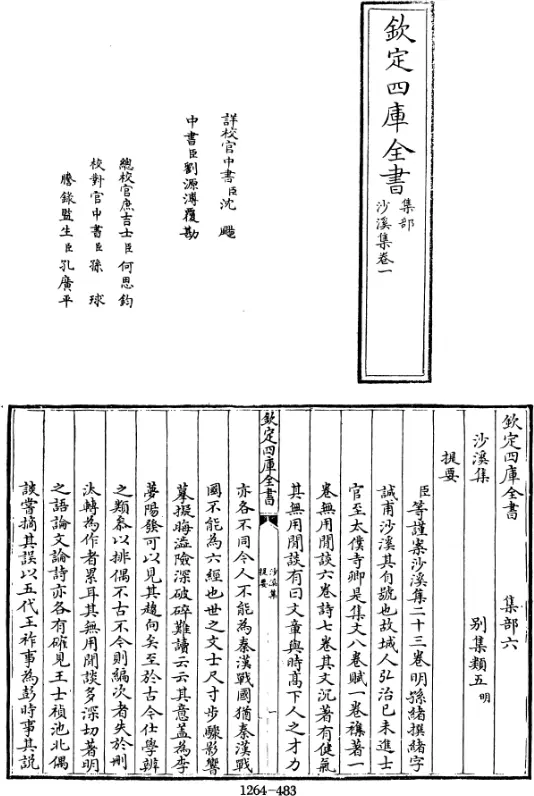 欽定四庫全書
集部
沙溪集卷一
詳校官中書臣沈颺
中書臣劉源溥覆勘
總校官庶吉士臣何思鈞
校對官中書臣孫球
謄錄監生臣孔廣平
欽定四庫全書　集部六
沙溪集　別集類五明
提要
臣等謹案沙溪集二十三卷明孫緒撰緒字
誠甫沙溪其自號也故城人弘治己未進士
官至太僕寺卿是集文八卷賦一卷襍著一
卷無用閒談六卷詩七卷其文沉著有健氣
其無用閒談有曰文章與時高下人之才力
欽定四庫全書
沙溪集
提要
一
亦各不同今人不能為秦漢戰國猶秦漢戰
國不能為六經也世之文士尺寸步驟影響
摹擬晦澁險深破碎難讀云云其意蓋為李
夢陽發可以見其趨向矣至於古今仕學辨
之類叅以排偶不古不今則編次者失於刪
汰轉為作者累耳其無用閒談多深切著明
之語論文論詩亦各有確見王士禎池北偶
談嘗摘其誤以五代王祚事為彭時事其説
1264-483